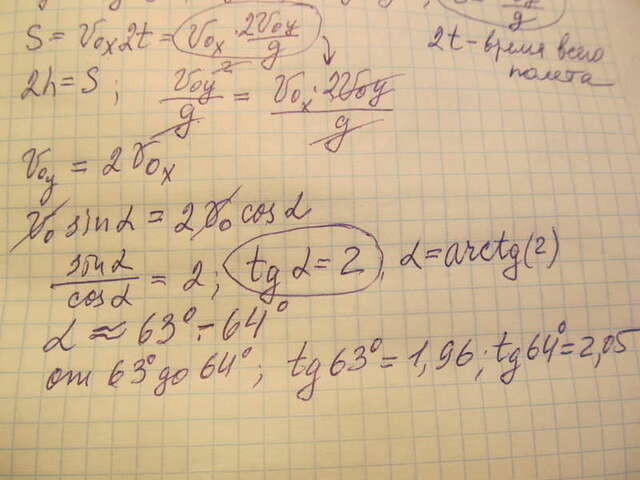 S = V₀ₓ2t = V₀ₓ · 2V₀y/g
2t - время всего
полета
2h = S; V₀y²/g = V₀ₓ · 2V₀y/g
V₀y = 2V₀ₓ
V₀ sinα = 2V₀ cosα
sinα/cosα = 2; tgα = 2, α = arctg(2)
α ≈ 63° ÷ 64°
от 63° до 64°; tg63° = 1,96; tg64° = 2,05